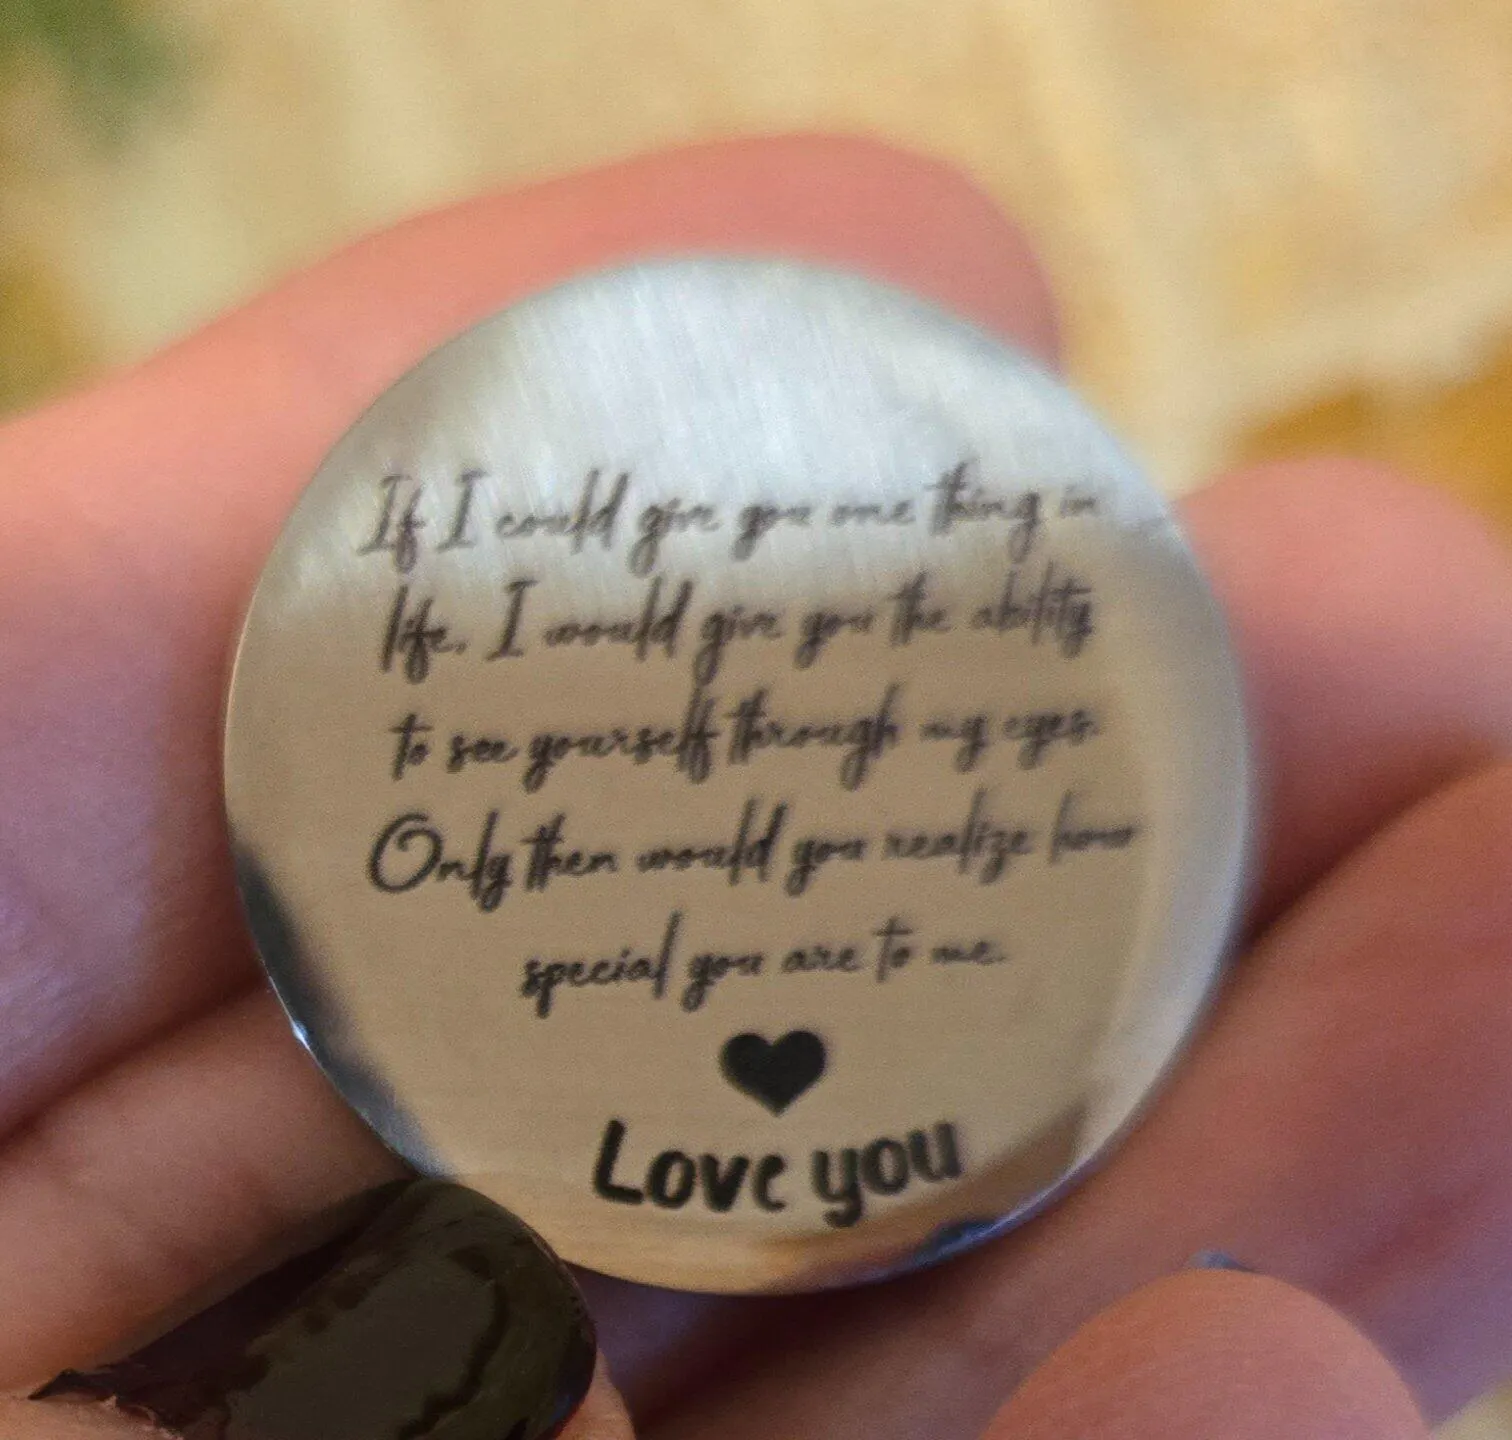 If I could give you one thing in
life, I would give you the ability
to see yourself through my eyes.
Only then would you realize how
special you are to me.
Love you